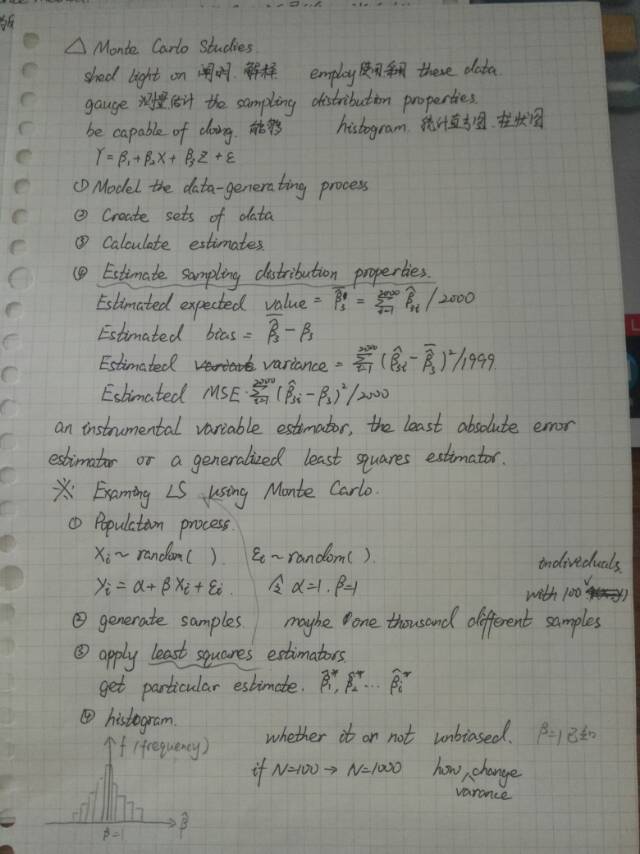 △ Monte Carlo Studies.
shed light on 阐明. 解释 employ 使用采用 these data.
gauge 测量估计 the sampling distribution properties.
be capable of doing. 能够 histogram. 统计直方图. 柱状图
Y = β₁ + β₂X + β₃Z + ε
① Model the data-generating process
② Create sets of data
③ Calculate estimates.
④ Estimate sampling distribution properties.
Estimated expected value = β̂̄₃ = Σ²⁰⁰⁰ᵢ₌₁ β̂₃ᵢ / 2000
Estimated bias = β̂̄₃ - β₃
Estimated variance = Σ²⁰⁰⁰ᵢ₌₁ (β̂₃ᵢ - β̂̄₃)² / 1999.
Estimated MSE = Σ²⁰⁰⁰ᵢ₌₁ (β̂₃ᵢ - β₃)² / 2000
an instrumental variable estimator, the least absolute error
estimator or a generalized least squares estimator.
※ Examing LS using Monte Carlo.
① Population process.
Xᵢ ~ random( ). εᵢ ~ random( ).
Yᵢ = α + βXᵢ + εᵢ 令 α=1. β=1
individuals.
with 100
② generate samples. maybe one thousand different samples
③ apply least squares estimators.
get particular estimate. β̂₁*, β̂₂* ... β̂ᵢ*
④ histogram.
f (frequency) whether it or not unbiased. β=1 已知
if N=100 → N=1000 how change
variance
β=1 β̂